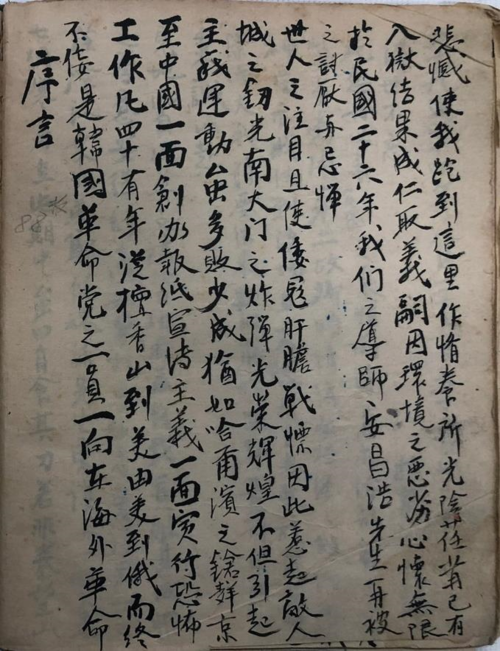 序言
不佞是韓國革命党之一員一向在海外革命
工作凡四十有年從檀香山到美由美到俄而終
至中國一面創办報紙宣传主義一面实行恐怖
主義運動虽多敗少成猶如哈爾濱之鎗声京
城之釰光南大门之炸弹光荣辉煌不但引起
世人之注目且使倭寇肝膽戰慄因此惹起敌人
之討厭与忌惮
於民國二十六年我们之導師安昌浩先生再被
入獄结果成仁取義嗣因環境之惡劣心懷無限
悲憾使我跑到這里作惰 所光陰荏苒已有